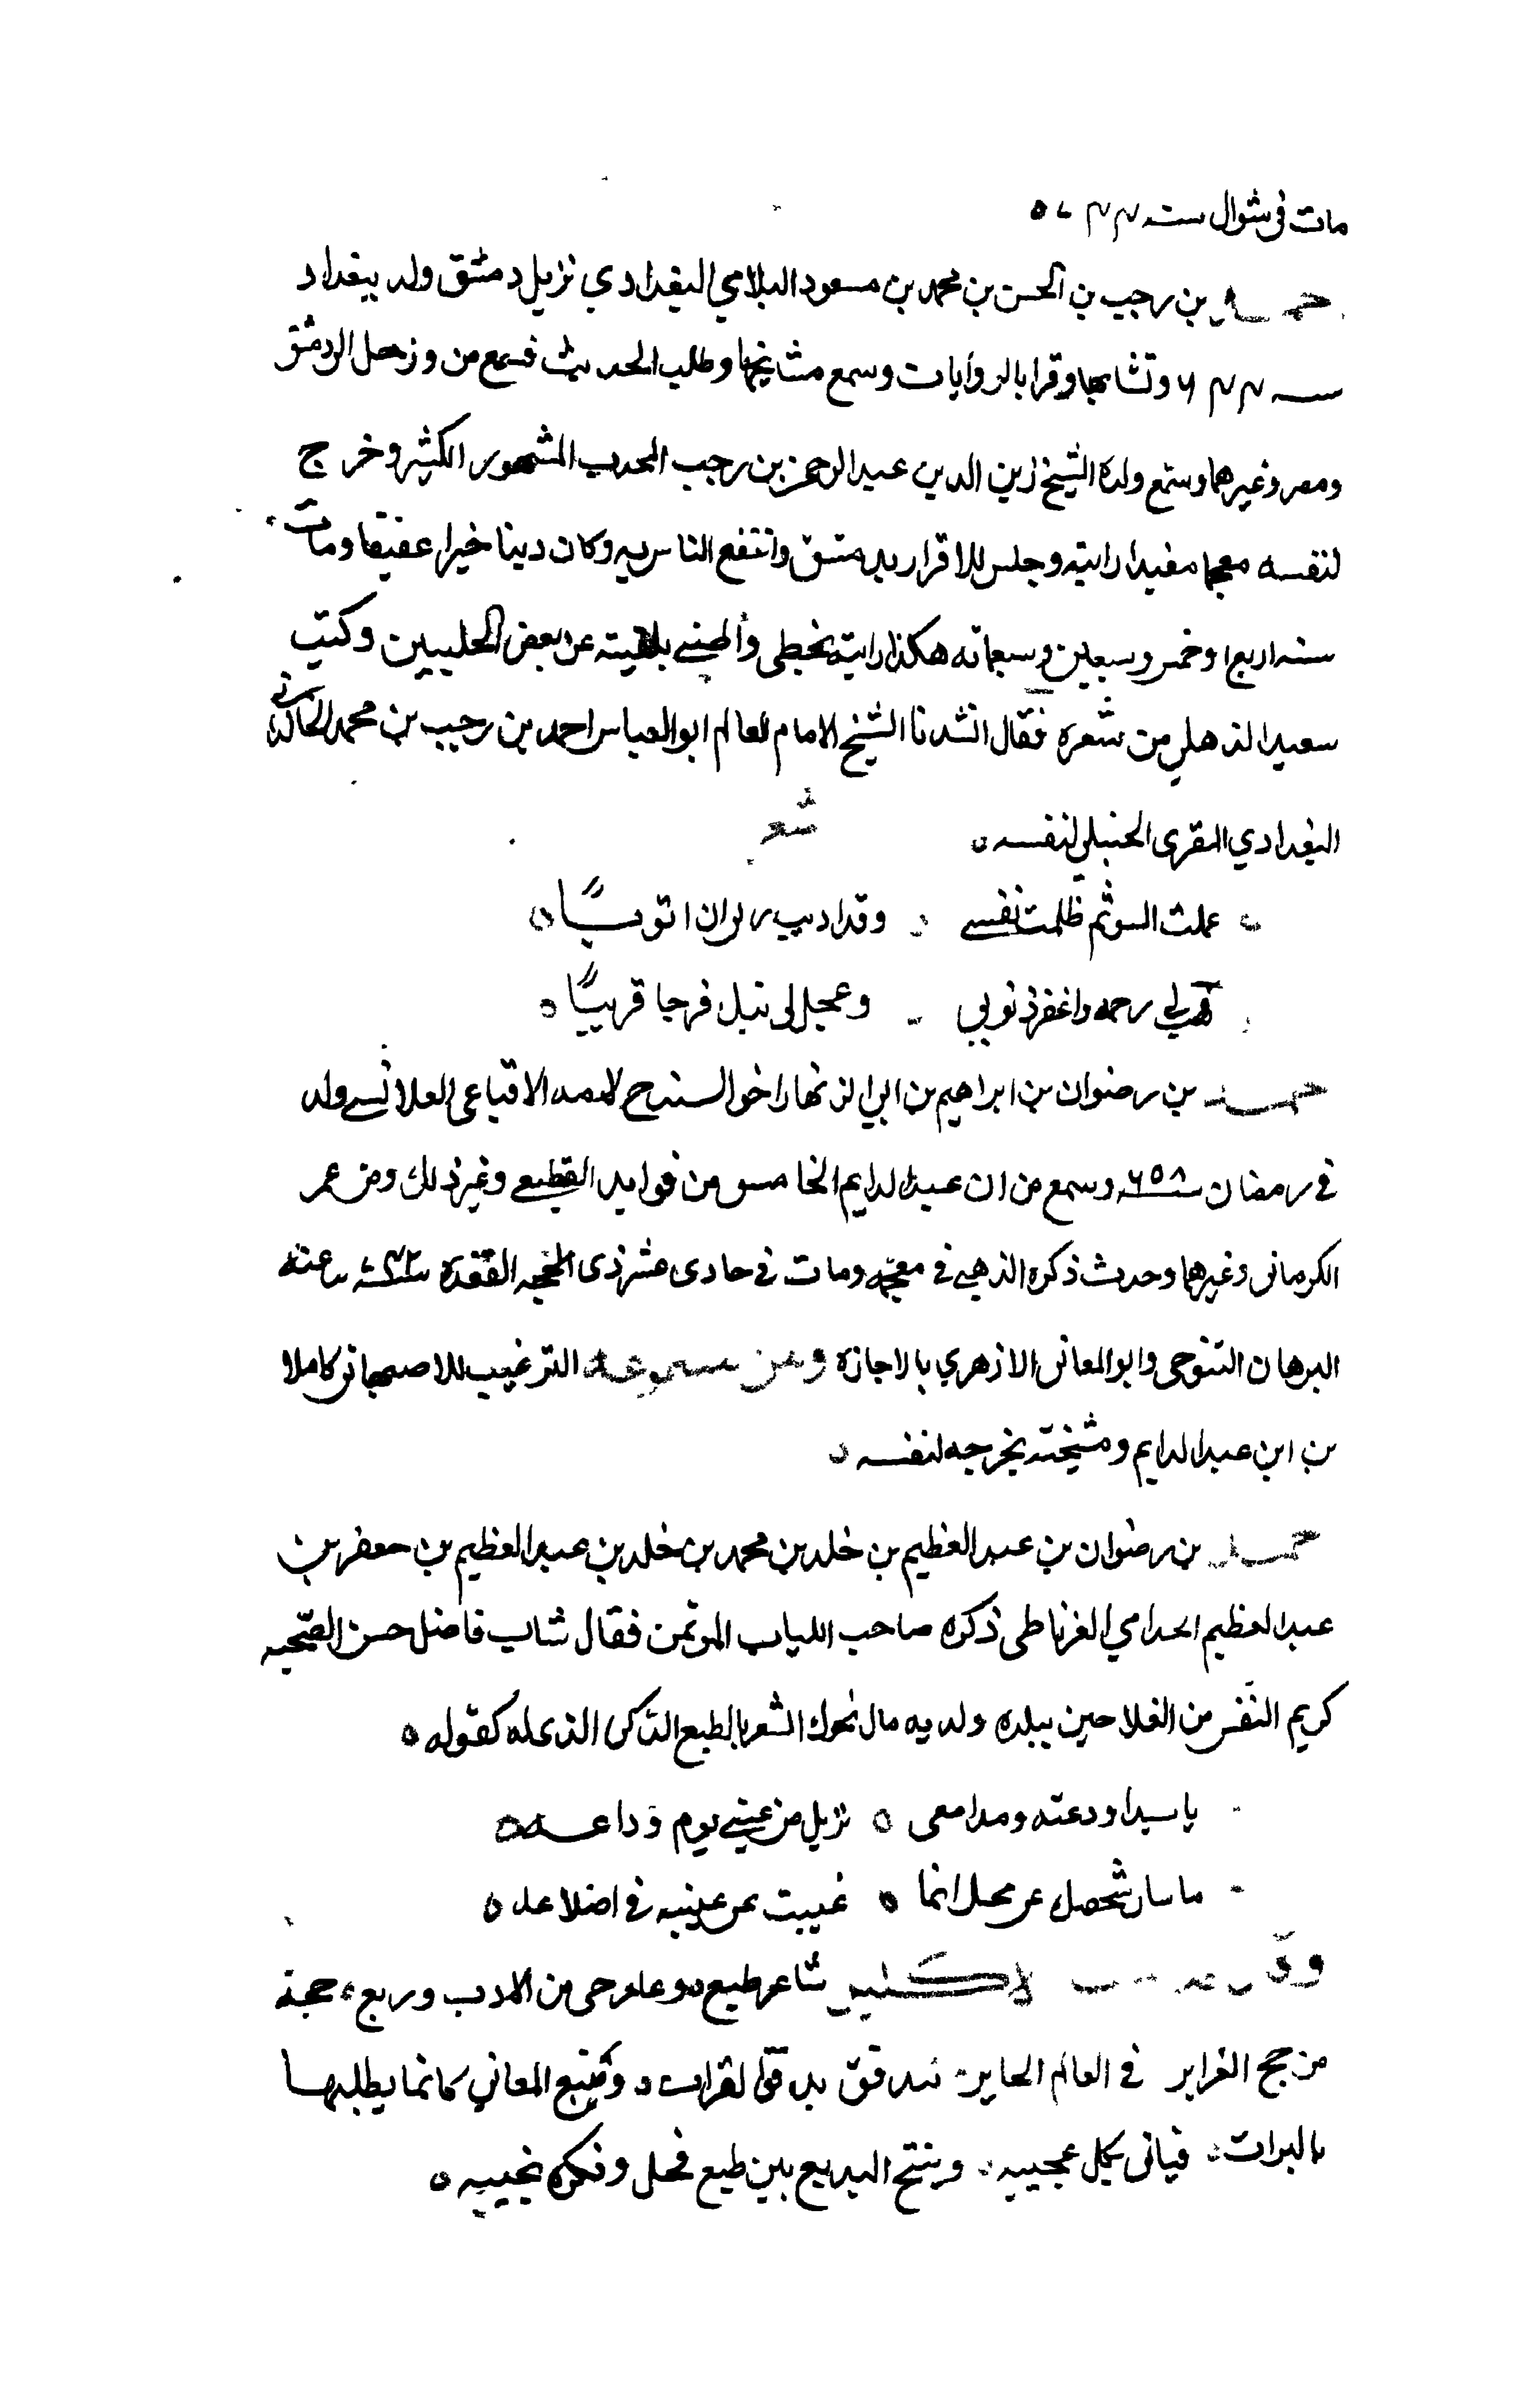 مات في شوال سنه ٧٤٤
احمد بن رجب بن الحسن بن محمد بن مسعود السلامي البغدادي نزيل دمشق ولد ببغداد
سنه ٦٤٤ ونشا بها وقرا بالروايات وسمع مشايخها وطلب الحديث فسمع من ورحل الى دمشق
ومصر وغيرهما وسمع ولده الشيخ زين الدين عبد الرحمن بن رجب المحدث المشهور الكثير وخرج
لنفسه معجما مفيدا رايته وجلس للاقرا بدمشق وانتفع الناس به وكان دينا خيرا عفيفا ومات
سنه اربع او خمس وسبعين وسبعمائه هكذا رايته بخطي واظنني تلقيته عن بعض الحلبيين وكتب
سعيد الذهلي من شعره فقال انشدنا الشيخ الامام العالم ابو العباس احمد بن رجب بن محمد الخالدي
البغدادي المقرى الحنبلي لنفسه
شعر
عملت السو ثم ظلمت نفسي وقد اديب ر لوان اتوبا
فهب لي رحمه واغفر ذنوبي وعجل لى نيل فرجا قريبا
احمد بن رضوان بن ابراهيم بن ابي الزنهار اخو الاقباعي ولد
في رمضان سنه ٦٥٨ وسمع من ابن عبد الدايم الخامس من فوايد القطيعي وغير ذلك ومن عمر
الكرماني وغيرهما وحدث ذكره الذهبي في معجمه ومات في حادى عشر ذى الحجه القعده سنه عنه
البرهان التنوخي وابو المعالى الازهري بالاجازه ومن مسموعه الترغيب للاصبهانى كاملا
من ابن عبد الدايم ومشيخته تخرجه لنفسه
احمد بن رضوان بن عبد العظيم بن خلد بن محمد بن خلد بن عبد العظيم بن جعفر بن
عبد العظيم الجدامي الغرناطي ذكره صاحب اللباب الموتمن فقال شاب فاضل حسن الصحبه
كريم النفس من الفلاحين ببلده ولديه مال نحوك الشعر بالطبع الذكى الذى له كقوله
يا سيدا ودعته ومدامعى تزيل من عيني يوم وداعه
ما سار شخصك عن محل انما غيبت عن عينيه في اضلاعه
وقال لاكليل شاعر طبع من الادب وربع حجة
من حجج الغراير في العالم الحاير تتدفق وتتبع المعاني كانما يطلبها
بالبرات فياتى بكل عجيبه وينتج البديع بين طبع فحل وفكره نجيبه